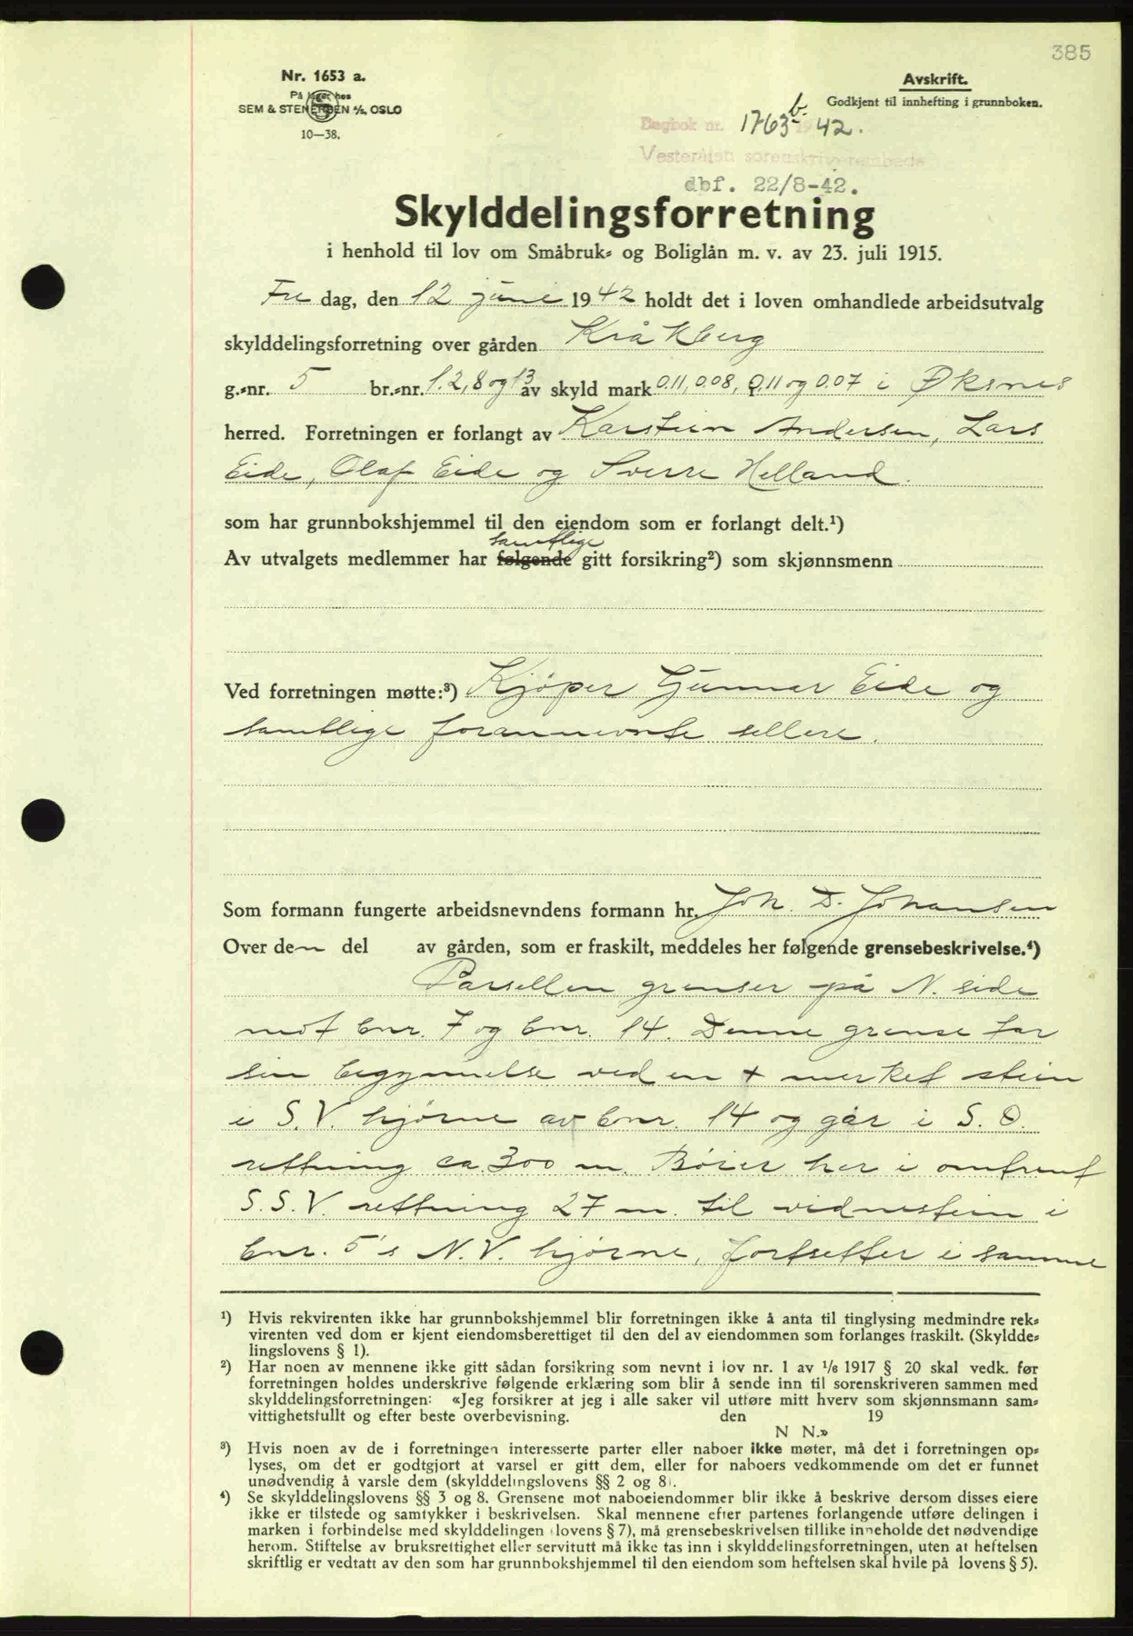 385
Nr. 1653 a.
På lager hos
SEM & STENERSEN A/S, OSLO
10—38.
Avskrift.
Godkjent til innhefting i grunnboken.
Dagbok nr. 1763 b 1942.
Vesterålen sorenskriverembede
dbf. 22/8-42.
Skylddelingsforretning
i henhold til lov om Småbruk- og Boliglån m. v. av 23. juli 1915.
Fre dag, den 12 juni 1942 holdt det i loven omhandlede arbeidsutvalg
skylddelingsforretning over gården Kråkberg
g.-nr. 5 br.-nr. 1.2,8 og 13 av skyld mark 0.11, 0.08, 0.11 og 0.07 i Øksnes
herred. Forretningen er forlangt av Karstein Andersen, Lars
Eide, Olaf Eide og Sverre Helland.
som har grunnbokshjemmel til den eiendom som er forlangt delt.¹)
samtlige
Av utvalgets medlemmer har følgende gitt forsikring²) som skjønnsmenn
Ved forretningen møtte:³) Kjøper Gunnar Eide og
samtlige forannevnte sellere.
Som formann fungerte arbeidsnevndens formann hr. Joh. D. Johansen
Over den del av gården, som er fraskilt, meddeles her følgende grensebeskrivelse.⁴)
Parsellen grenser på N. side
mot bnr. 7 og bnr. 14. Denne grense tar
sin begynnelse ved en + merket stein
i S.V. hjørne av bnr. 14 og går i S.O.
rettning ca 300 m. Bøier her i omtrent
S.S.V. rettning 27 m. til vidnestein i
bnr. 5's N.V. hjørne, fortsetter i samme
¹) Hvis rekvirenten ikke har grunnbokshjemmel blir forretningen ikke å anta til tinglysing medmindre rek-
virenten ved dom er kjent eiendomsberettiget til den del av eiendommen som forlanges fraskilt. (Skyldde-
lingslovens § 1).
²) Har noen av mennene ikke gitt sådan forsikring som nevnt i lov nr. 1 av 1/6 1917 § 20 skal vedk. før
forretningen holdes underskrive følgende erklæring som blir å sende inn til sorenskriveren sammen med
skylddelingsforretningen: «Jeg forsikrer at jeg i alle saker vil utføre mitt hverv som skjønnsmann sam-
vittighetsfullt og efter beste overbevisning. den 19
N N.»
³) Hvis noen av de i forretningen interesserte parter eller naboer ikke møter, må det i forretningen op-
lyses, om det er godtgjort at varsel er gitt dem, eller for naboers vedkommende om det er funnet
unødvendig å varsle dem (skylddelingslovens §§ 2 og 8).
⁴) Se skylddelingslovens §§ 3 og 8. Grensene mot naboeiendommer blir ikke å beskrive dersom disses eiere
ikke er tilstede og samtykker i beskrivelsen. Skal mennene efter partenes forlangende utføre delingen i
marken i forbindelse med skylddelingen (lovens § 7), må grensebeskrivelsen tillike inneholde det nødvendige
herom. Stiftelse av bruksrettighet eller servitutt må ikke tas inn i skylddelingsforretningen, uten at heftelsen
skriftlig er vedtatt av den som har grunnbokshjemmel til den eiendom som heftelsen skal hvile på (lovens § 5).